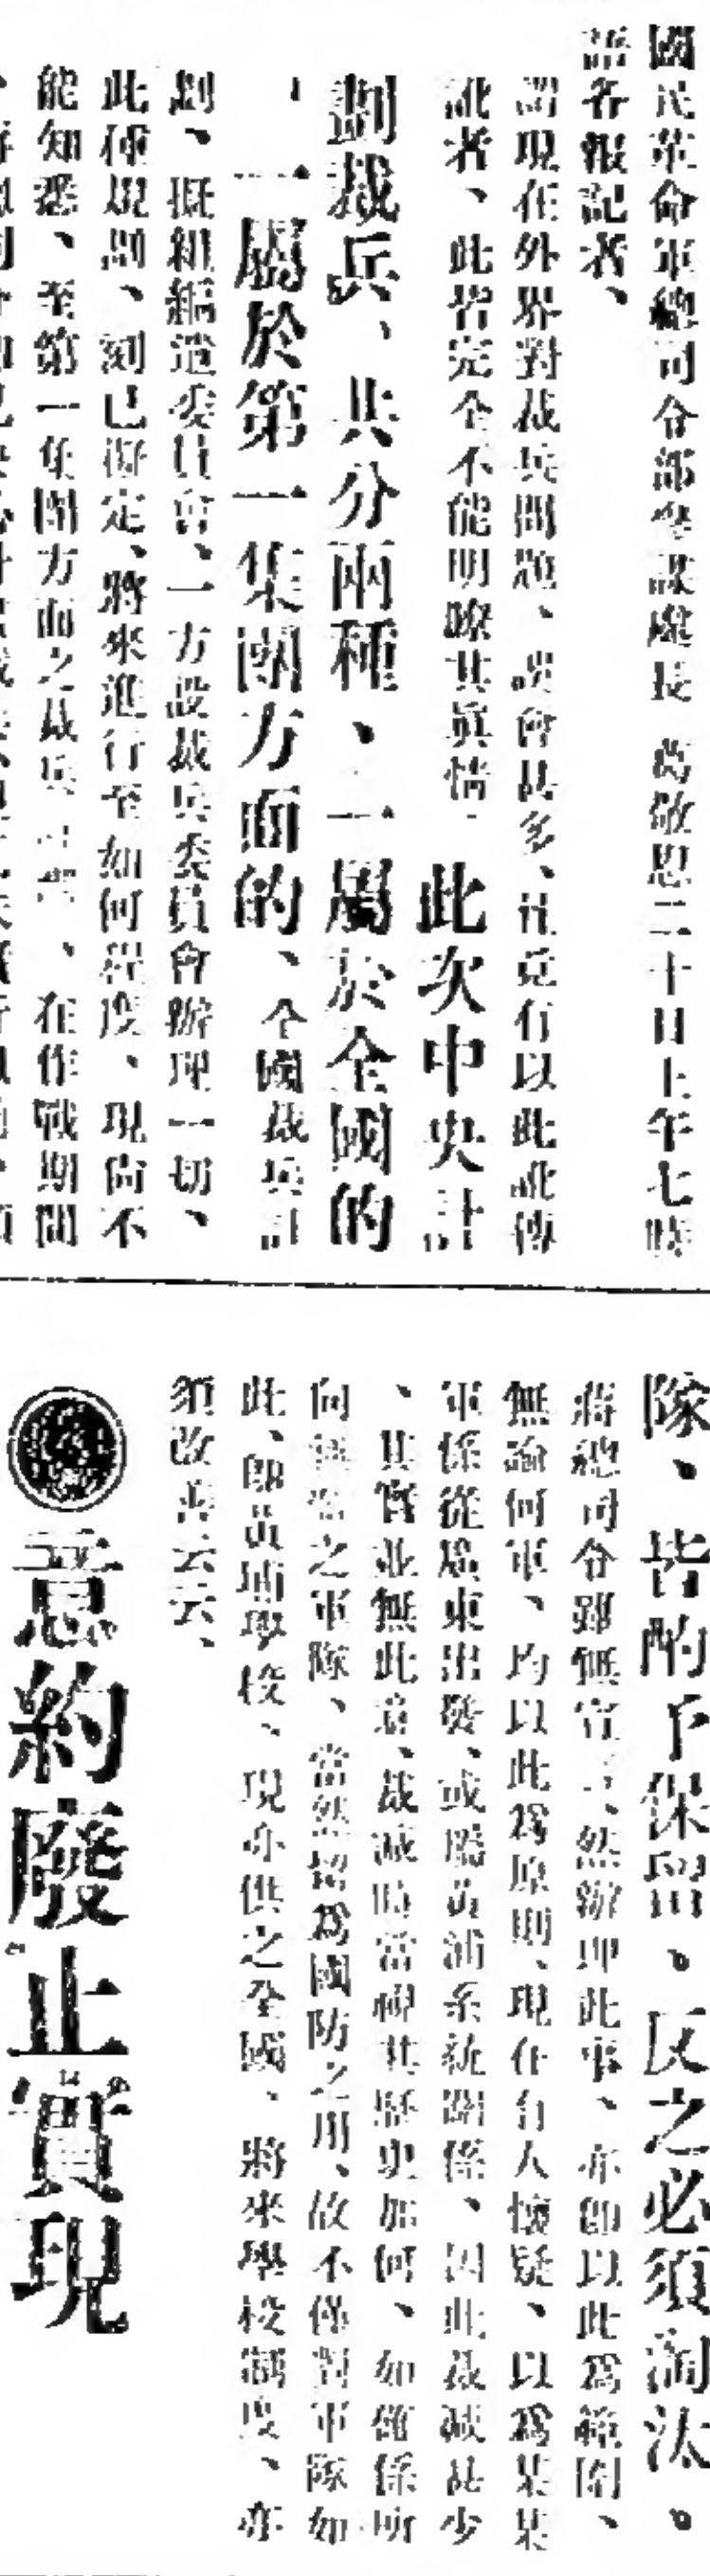 國民革命軍總司令部參謀處長葛敬恩二十日上午七時
語各報記者、
謂現在外界對裁兵問題、誤會甚多、社竟有以此訛傳
訛者、此皆完全不能明瞭其眞情、此次中央計
劃裁兵、共分兩種、一屬於全國的
、一屬於第一集團方面的、全國裁兵計
劃、擬組編遣委員會、一方設裁兵委員會辦理一切、
此種規劃、刻已擬定、將來進行至如何程度、現尙不
能知悉、至第一集團方面之裁兵 、在作戰期間
隊、皆酌予保留、反之必須淘汰。
蔣總司令雖無宣 、然辦理此事、亦卽以此爲範圍、
無論何軍、均以此爲原則、現在有人懷疑、以爲某某
軍係從廣東出發、或屬黃浦系統關係、因此裁減甚少
、其實並無此意、裁減時當視其歷史如何、如確係所
向 之軍隊、當然留爲國防之用、故不僅對軍隊如
此、卽黃埔學校、現亦供之全國、將來學校制度、亦
須改善云云、
意約廢止實現